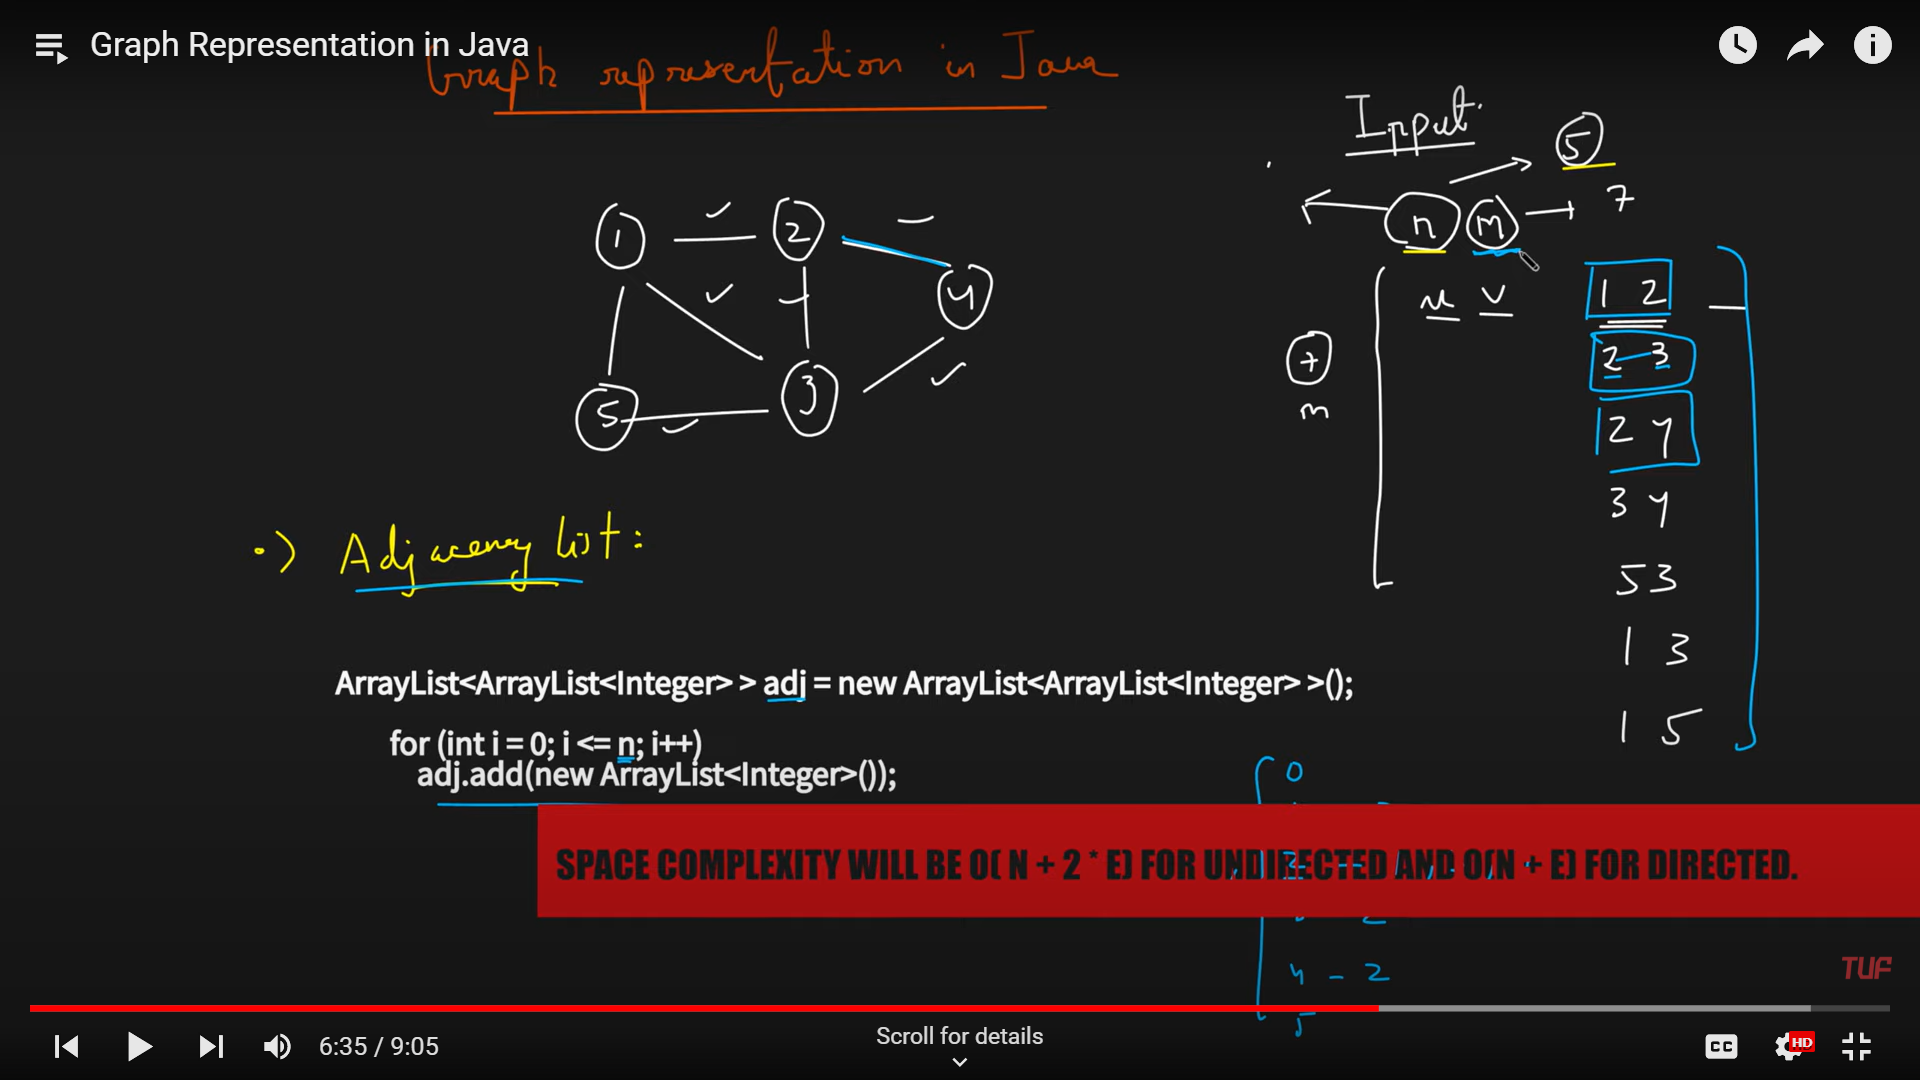 Graph Representation in Java
Graph representation in Java
Input
5
n m 7
1 2 4
5 3
u v
m
1 2
2 3
2 4
3 4
5 3
1 3
1 5
Adjacency list:
ArrayList<ArrayList<Integer> > adj = new ArrayList<ArrayList<Integer> >();
for (int i = 0; i <= n; i++)
adj.add(new ArrayList<Integer>());
0
SPACE COMPLEXITY WILL BE O( N + 2 * E) FOR UNDIRECTED AND O(N + E) FOR DIRECTED.
4 - 2
5
TUF
6:35 / 9:05
Scroll for details
CC
HD